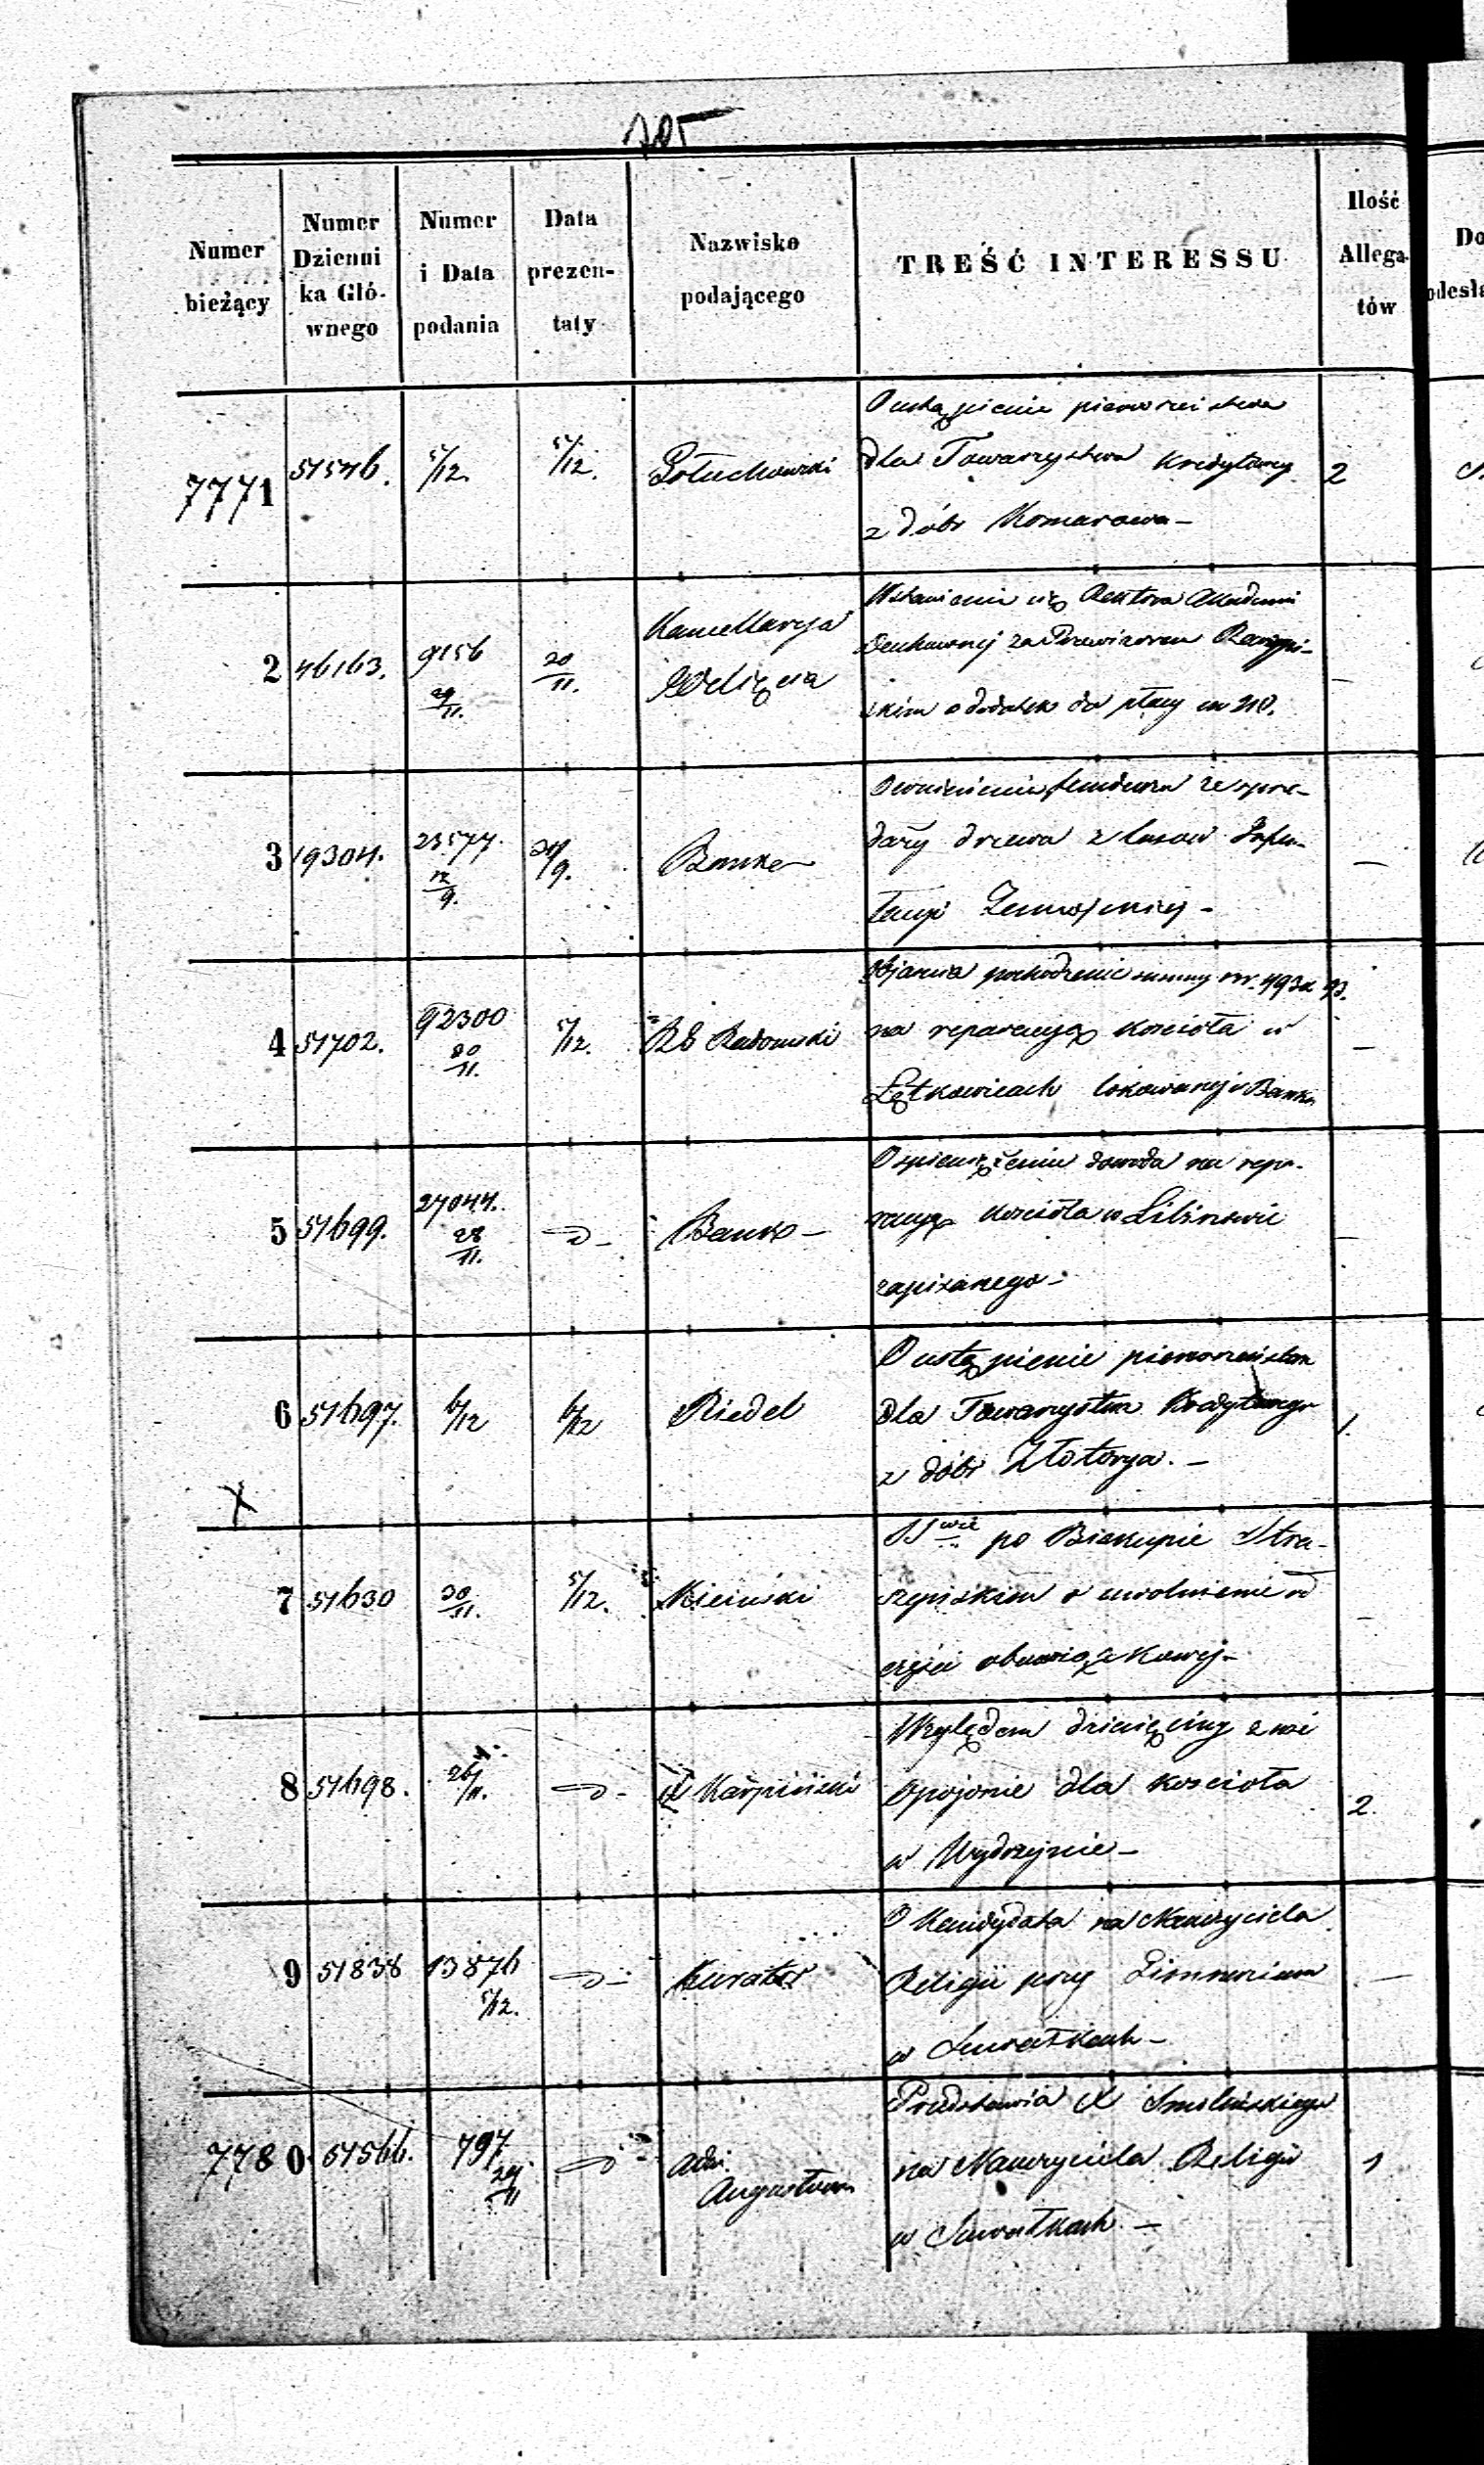 705
Numer bieżący
Numer Dzienni ka Głó- wnego
Numer i Data podania
Data prezen- taty
Nazwisko podającego
TREŚĆ INTERESSU
Ilość Allega- tów
Do
odesła
7771 51546. 5/12. 5/12. Gołuchowski
O ustąpienie pierwszeństwa
dla Towarzystwa Kredytoweg 2
z dóbr Komarowa –
2 46163. 9156 29/11. 20/11. Kancellarya
Xięcia
Wstawienie się Rektora Akademii
Duchownej za
skim o dodatek do płacy
3 19304. 23577. 12/9. /9. Banku
fundusza ze sprze-
daży drzewa z lasów
–
4 51702. 92300 30/11. 5/12. RG Radomski
Objaśnia pochodzenie summy rsr. 493 k 93.
na reparacyą kościoła w –
Łętkowicach lokowanej w Banku
5 51699. 27044. 28/11. –d– Bank –
O spieniężenie dowodu na repa-
racyą kościoła w
zapisanego –
6 51697. 6/12 6/12 Riedel
O ustąpienie pierwszeństwa
dla Towarzystwa Kredytowego 1.
z dóbr Złotorya. –
X
7 51630 30/11. 5/12. Kiciński
SSwie po Biskupie Stra-
szyńskim o uwolnienie od –
części obowiązkowej –
8 51698. 26/11. –d– X Karpiński
Względem dziesięciny z wsi
Opojonie dla kościoła 2.
w Wydrzynie –
9 51838 13876 5/12. –d– Kurator
O Kandydata na Nauczyciela
Religii przy Gimnazium –
w Suwałkach –
7780 51566. 797 29/11 –d– Adm. Augustowa
Przedstawia X Smoleńskiego
na Nauczyciela Religii 1
w Suwałkach –